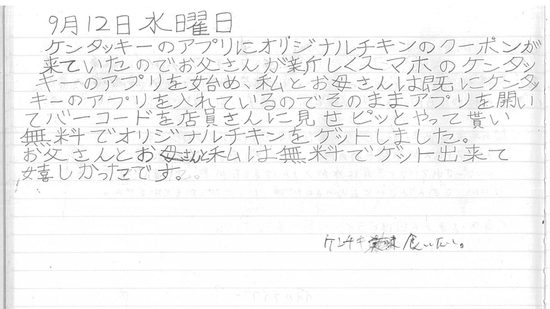 9月12日水曜日
ケンタッキーのアプリにオリジナルチキンのクーポンが
来ていたのでお父さんが新しくスマホのケンタッ
キーのアプリを始め、私とお母さんは既にケンタッ
キーのアプリを入れているのでそのままアプリを開い
てバーコードを店員さんに見せピッとやって貰い
無料でオリジナルチキンをゲットしました。
お父さんとお母さんと私は無料でゲット出来て
嬉しかったです。
ケンチキ 食いたい。